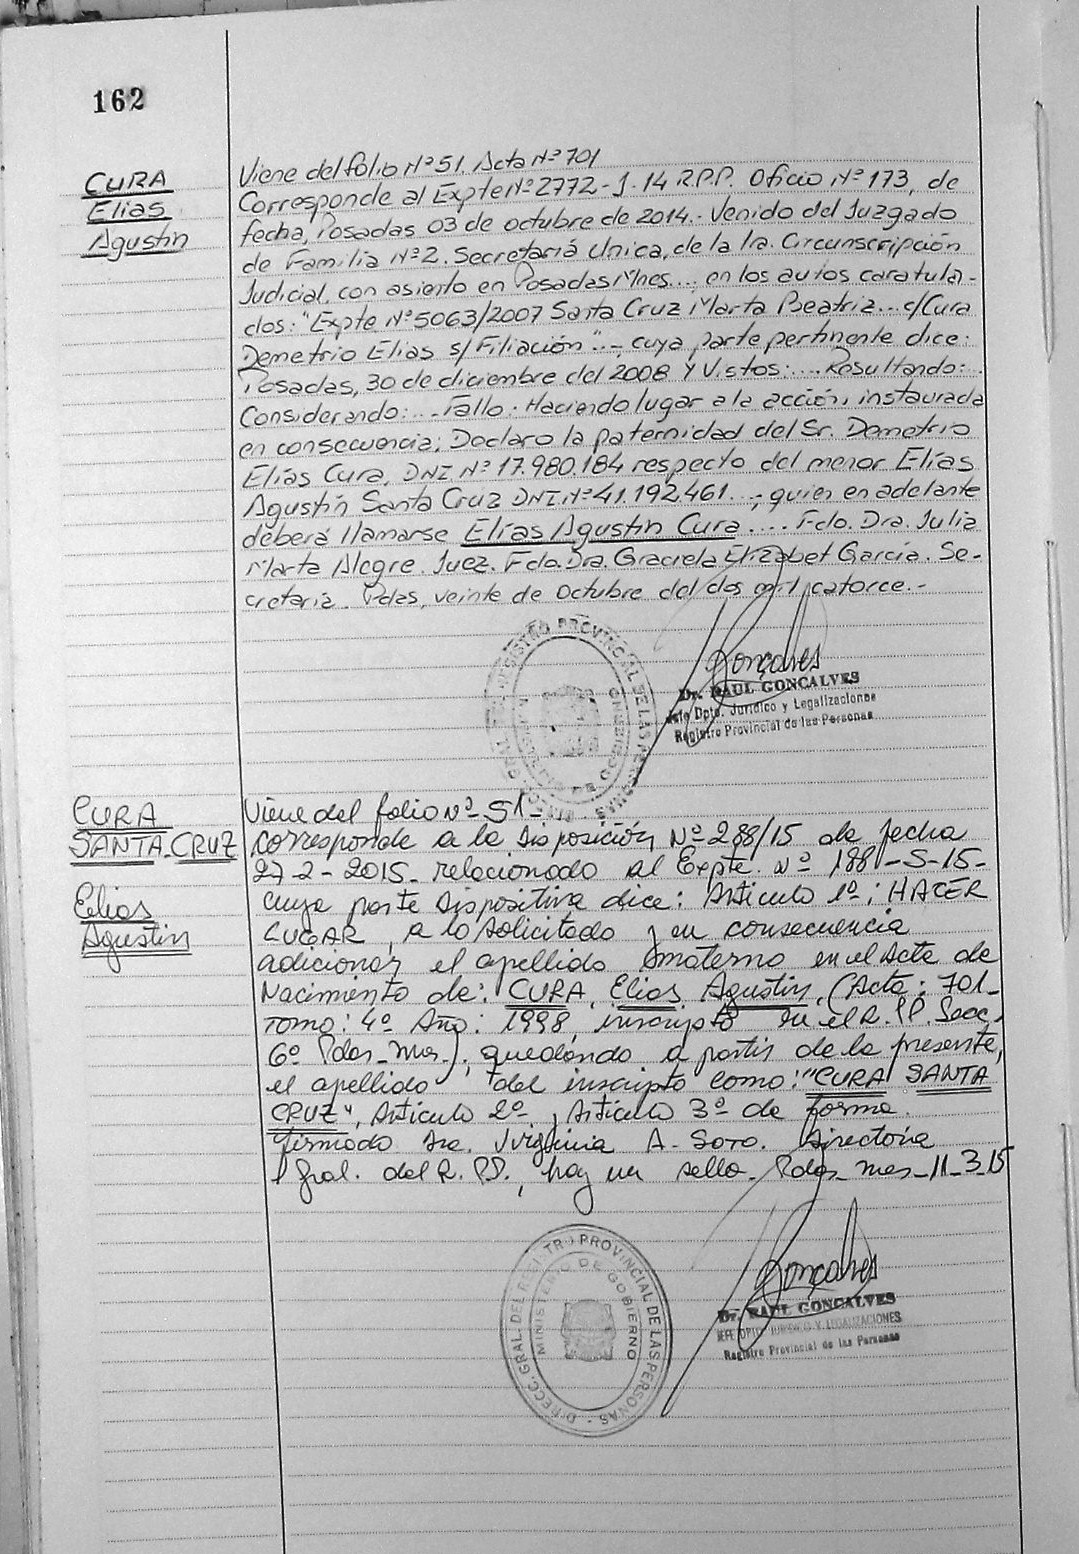 162
CURA
Elías
Agustín
Viene del folio Nº 51. Acta Nº 701
Corresponde al Expte Nº 2772-J-14 R.P.P. Oficio Nº 173, de
fecha, Posadas 03 de octubre de 2014.- Venido del Juzgado
de Familia Nº 2. Secretaría Unica, de la 1ra. Circunscripción
Judicial, con asiento en Posadas Mnes.... en los autos caratula-
dos: "Expte Nº 5063/2007 Santa Cruz Marta Beatriz... c/ Cura
Demetrio Elías s/ Filiación"..-, cuya parte pertinente dice:
Posadas, 30 de diciembre del 2008 Y Vistos:... Resultando:..
Considerando:... Fallo. Haciendo lugar a la acción, instaurada
en consecuencia; Declaro la paternidad del Sr. Demetrio
Elías Cura, DNI. Nº 17.980.184 respecto del menor Elías
Agustín Santa Cruz DNI. Nº 41.192.461...-, quien en adelante
deberá llamarse Elías Agustín Cura.... Fdo. Dra. Julia
Marta Alegre. Juez. Fdo. Dra. Graciela Elizabet García. Se-
cretaria. Pdas, veinte de Octubre del dos mil catorce.-
REGISTRO PROVINCIAL DE LAS PERSONAS
DE GOBIERNO
Goncalves
Dr. RAUL GONCALVES
Jefe Dpto. Jurídico y Legalizaciones
Registro Provincial de las Personas
CURA
SANTA CRUZ
Elías
Agustín
Viene del folio Nº 51-
Corresponde a la Disposición Nº 288/15 de fecha
27-2-2015- relacionado al Expte. Nº 188-S-15-
cuya parte dispositiva dice: Artículo 1º: HACER
LUGAR, a lo solicitado y en consecuencia
adicionar el apellido materno en el Acta de
Nacimiento de: CURA, Elías Agustín, (Acta: 701-
Tomo: 4º Año: 1998 inscripto en el R.PP. Secc.
6º Pdas-Mnes.), quedando a partir de la presente,
el apellido del inscripto como: "CURA SANTA
CRUZ", Artículo 2º, Artículo 3º de forma.
Firmado Dra. Virginia A. Soto. Directora
Gral. del R.PP., hay un sello. Pdas-Mnes-11-3-15
DIRECC. GRAL. DEL REGISTRO PROVINCIAL DE LAS PERSONAS
MINISTERIO DE GOBIERNO
Goncalves
Dr. RAUL GONCALVES
JEFE DPTO. JURIDICO Y LEGALIZACIONES
Registro Provincial de las Personas